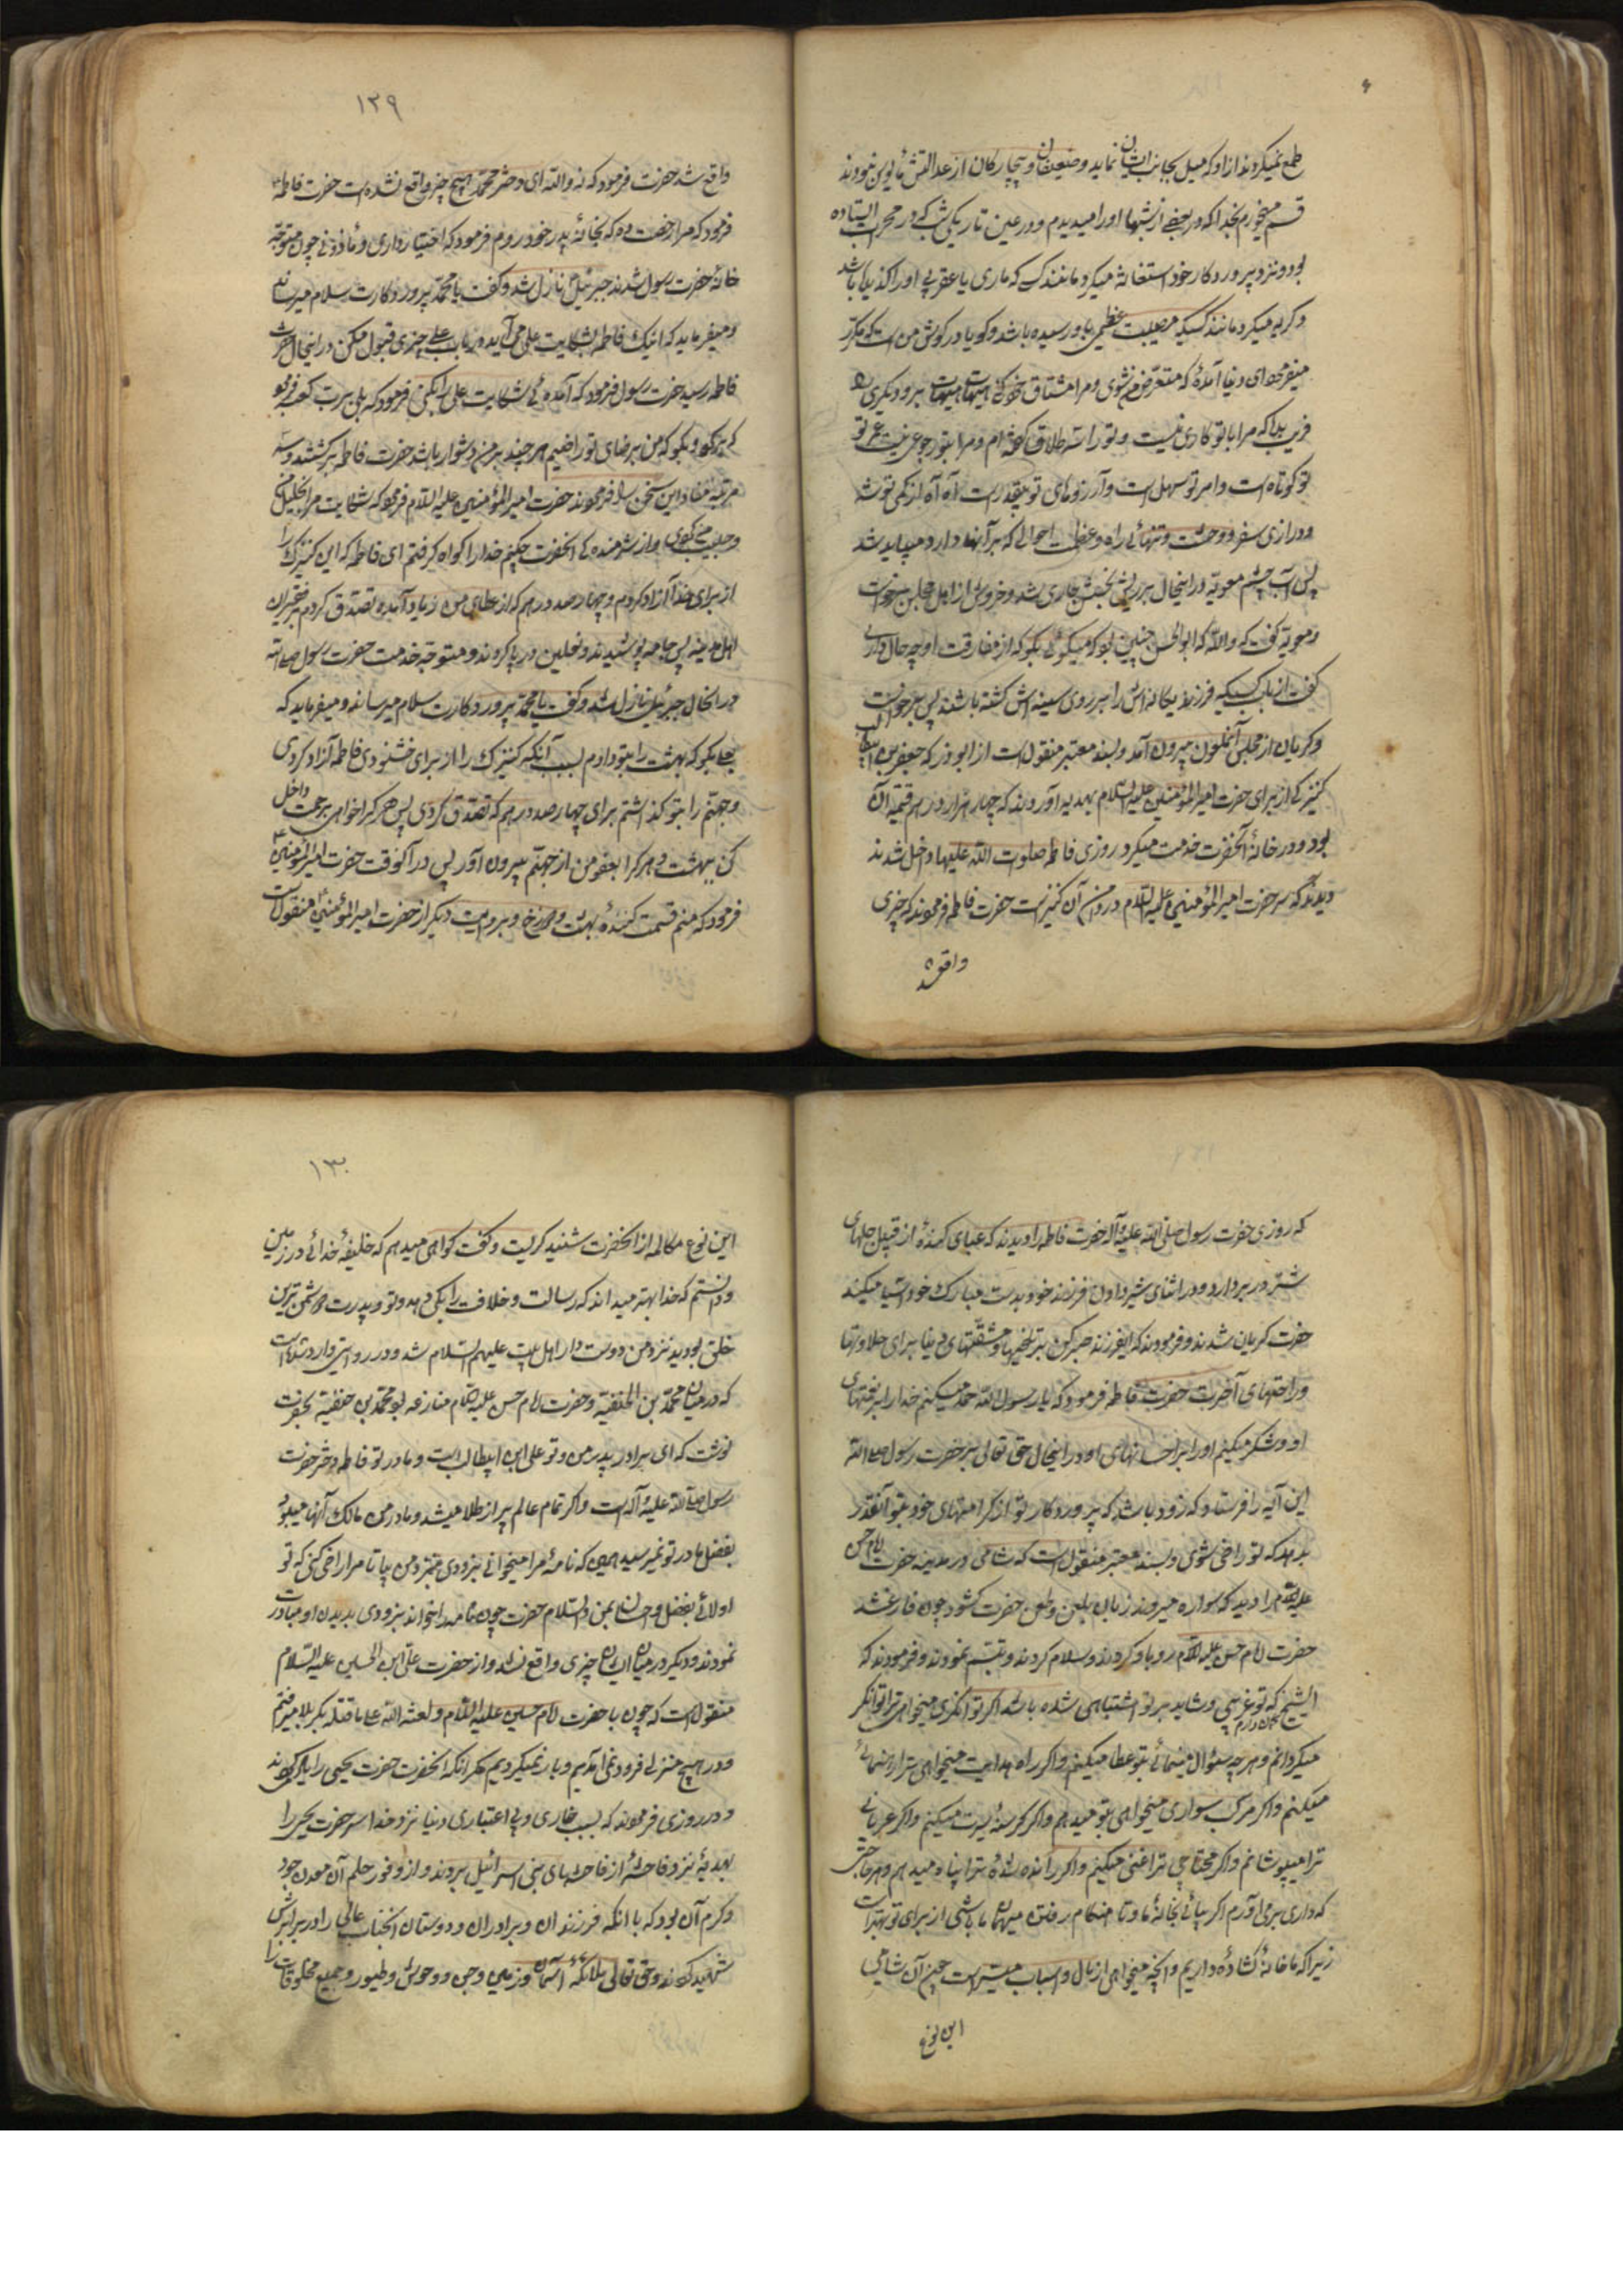 طمع نمیکردند از او که میل بجانب ایشان نماید و ضعیفان و بیچارکان از عدالتش مأیوس نبودند
قسم میخورم بخدا که در بعضی از شبها او را میدیدم و در عین تاریکی شب که در محراب ایستاده
بود و نزد پروردکار خود استغاثه میکرد مانند کسی که ماری یا عقربی او را کزیده باشد
و کریه میکرد مانند کسیکه مصیبت عظیمی باو رسیده باشد و کویا در کوش من است که مکرّر
میفرمود ای دنیا آمدۀ که متعرّض من شوی و مرا مشتاق خود کنی هیهات هیهات برو دیکری را
فریب بده که مرا با تو کاری نیست و تو را سه طلاق کفته‌ام و مرا بتو رجوعی نیست عمر تو
کوتاه است و امر تو سهل است و آرزوهای تو بیقدر است آه آه از کمی توشه
و درازی سفر و وحشت و تنهائی راه و عظمت احوالی که بر آنها وارد میباید شد
پس آب چشم معویه در اینحال بر ریش نحسش جاری شد و خروش از اهل مجلس برخواست
و معویه کفت که والله که ابوالحسن چنین بود که میکوئی بکو که از مفارقت او چه حال داری
کفت از باب کسیکه فرزند یکانه‌اش را بر روی سینه‌اش کشته باشند پس برخواست
و کریان از مجلس آنملعون بیرون آمد و بسند معتبر منقول است از ابوذر که جعفر بن ابیطالب
کنیزکی از برای حضرت امیرالمؤمنین علیه السّلام بهدیه آورد که چهار هزار درهم قیمه آن
بود و در خانۀ آنحضرت خدمت میکرد روزی فاطمه صلوات الله علیها داخل شدند
دیدند که سر حضرت امیرالمؤمنین علیه السّلام در دامن آن کنیز است حضرت فاطمه فرمودند که چیزی
واقع شد
۱۲۹
واقع شد حضرت فرمود که نه والله ای دختر محمّد هیچ چیز واقع نشده است حضرت فاطمه
فرمود که مرا رخصت ده که بخانۀ پدر خود روم فرمود که اختیار داری و مأذونی چون متوجّه
خانۀ حضرت رسول شدند جبرئیل نازل شد و کفت یا محمّد پروردکارت سلام میرساند
و میفرماید که اینک فاطمه بشکایت علی می‌آید در باب علی چیزی قبول مکن در اینحال حضرت
فاطمه رسید حضرت رسول فرمود که آمدۀ که شکایت علی را بکنی فرمود که بلی برب کعبه فرمود
که برکرد و بکو که من برضای تو راضیم هر چند بر من دشوار باشد حضرت فاطمه برکشتند و سه
مرتبه مفاد این سخن را فرمودند حضرت امیرالمؤمنین علیه السّلام فرمود که شکایت مرا بخلیل من
و حبیب من کردی و از شرمندکی آنحضرت چکنم خدا را کواه کرفتم ای فاطمه که این کنیزک را
از برای خدا آزاد کردم و چهار صد درهم که از عطای من زیاد آمده تصدّق کردم بر فقیران
اهل مدینه پس جامه پوشیدند و نعلین در پا کردند و متوجّه خدمت حضرت رسول صلی الله
در آنحال جبرئیل نازل شد و کفت یا محمّد پروردکارت سلام میرساند و میفرماید که
بعلی بکو که بهشت را بتو دادم بسبب آنکه کنیزک را از برای خشنودی فاطمه آزاد کردی
و جهنّم را بتو کذاشتم برای چهار صد درهم که تصدّق کردی پس هر که را خواهی برحمت من داخل
کن ببهشت و هر که را بعفو من از جهنّم بیرون آور پس در آنوقت حضرت امیرالمؤمنین
فرمود که منم قسمت کنندۀ بهشت و دوزخ و بروایت دیکر از حضرت امیرالمؤمنین منقول است
که روزی حضرت رسول صلّی الله علیه و آله حضرت فاطمه را دیدند که عبای کهنۀ از قبیل جلهای
شتر در بر دارد و در اثنای شیر دادن فرزند خود بدست مبارک خود آسیا میکند
حضرت کریان شدند و فرمودند که ایفرزند صبر کن بر تلخیها و مشقّتهای دنیا برای حلاوتها
و راحتهای آخرت حضرت فاطمه فرمود که یا رسول الله حمد میکنم خدا را بر نعمتهای
او و شکر میکنم او را بر احسانهای او در اینحال حق تعالی بر حضرت رسول صلی الله
این آیه را فرستاد که زود باشد که پروردکار تو از کرامتهای خود بتو آنقدر
بدهد که تو راضی شوی و بسند معتبر منقول است که شامی در مدینه حضرت امام حسن
علیه السّلام را دید که سواره میرود زبان بلعن و طعن حضرت کشود چون فارغ شد
حضرت امام حسن علیه السّلام رو باو کردند و سلام کردند و تبسّم نمودند و فرمودند که
ایشیخ کمان دارم که تو غریبی و شاید بر تو اشتباهی شده باشد اکر توانکری میخواهی ترا توانکر
میکردانم و هر چه سؤال مینمائی بتو عطا میکنم و اکر راه هدایت میخواهی ترا رهنمائی
میکنم و اکر مرکب سواری میخواهی بتو میدهم و اکر کرسنۀ سیرت میکنم و اکر عریانی
ترا میپوشانم و اکر محتاجی ترا غنی میکنم و اکر رانده شدۀ ترا پناه میدهم و هر حاجتی
که داری برمی‌آورم اکر بیائی بخانۀ ما و تا هنکام رفتن میهمان ما باشی از برای تو بهتر است
زیرا که ما خانۀ کشاده داریم و آنچه میخواهی از مال و اسباب میسّر است چون آن شامی
این نوع
۱۳۰
این نوع مکالمه از آنحضرت شنید کریست و کفت کواهی میدهم که خلیفۀ خدائی در زمین
و دانستم که خدا بهتر میداند که رسالت و خلافت را بکی دهد و تو و پدرت دشمن ترین
خلق بودید نزد من دوست دار اهل بیت علیهم السّلام شد و در روایتی وارد شده است
که در میان محمّد بن الحنفیّة و حضرت امام حسن علیه السّلام منازعه بود محمّد بن حنفیّة بحضرت
نوشت که ای برادر پدر من و تو علی ابن ابیطالب است و مادر تو فاطمه دختر حضرت
رسول صلی الله علیه و آله است و اکر تمام عالم پر از طلا میشد و مادر من مالک آنها میبود
بفضل مادر تو نمیرسید همین که نامۀ مرا میخوانی بزودی بنزد من بیا تا مرا راضی کنی که تو
اولائی بفضل و احسان بمن والسّلام حضرت چون نامه را خواند بزودی بدیدن او مبادرت
نمودند و دیکر در میان ایشان چیزی واقع نشد و از حضرت علی ابن الحسین علیه السّلام
منقول است که چون با حضرت امام حسین علیه السّلام و لعنة الله علی قتله بکربلا میرفتم
و در هیچ منزلی فرود نمی‌آمدیم و بار نمیکردیم مکر آنکه آنحضرت حضرت یحیی را یاد میکردند
و در روزی فرمودند که بسبب خاری و بی اعتباری دنیا نزد خدا سر حضرت یحیی را
بهدیۀ نزد فاحشۀ از فاحشهای بنی اسرائیل بردند و از وفور حلم آن معدن جود
و کرم آن بود که با آنکه فرزندان و برادران و دوستان آنجناب عالی را در برابرش
شهید کردند و حق تعالی ملائکۀ آسمان و زمین و جن و وحوش و طیور و جمیع مخلوقات را